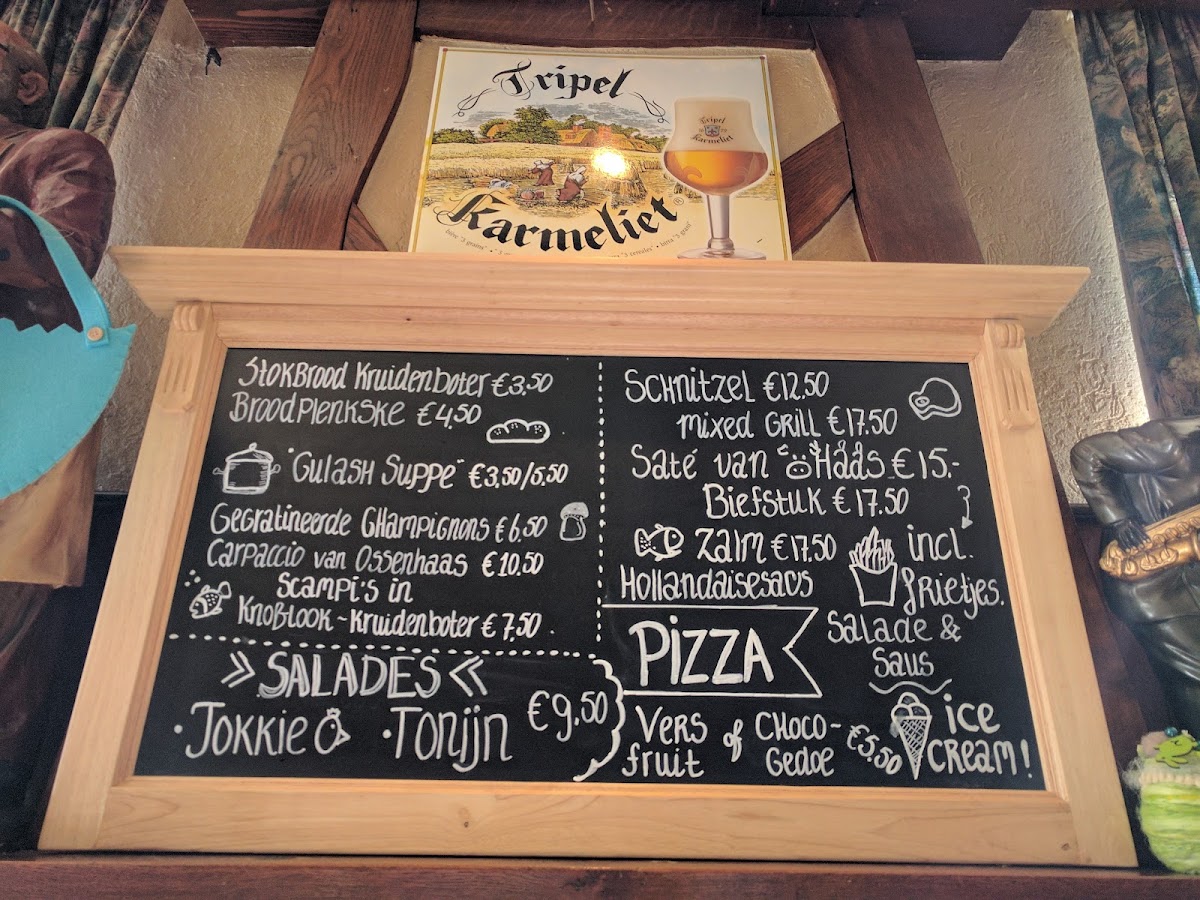 Tripel
Karmeliet
Tripel
Karmeliet
StokBrood Kruidenboter €3,50
BroodPlenkske €4,50
"Gulash Suppe" €3,50/5,50
Gegratineerde CHampignons €6,50
Carpaccio van Ossenhaas €10,50
Scampi's in
Knoflook-Kruidenboter €7,50.
SALADES
·Jokkie ·Tonijn €9,50
Schnitzel €12,50
mixed Grill €17.50
Saté van Håås €15.-
Biefstuk €17.50
Zalm €17.50
Hollandaisesaus
incl.
frietjes.
Salade &
Saus
PIZZA
Vers
fruit
of
CHOCO-
Gedoe
€5,50
ice
cream!